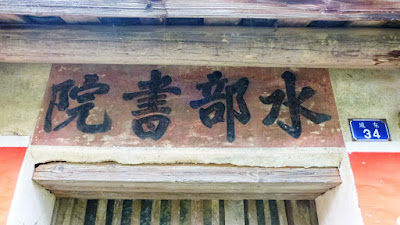 水部書院
34